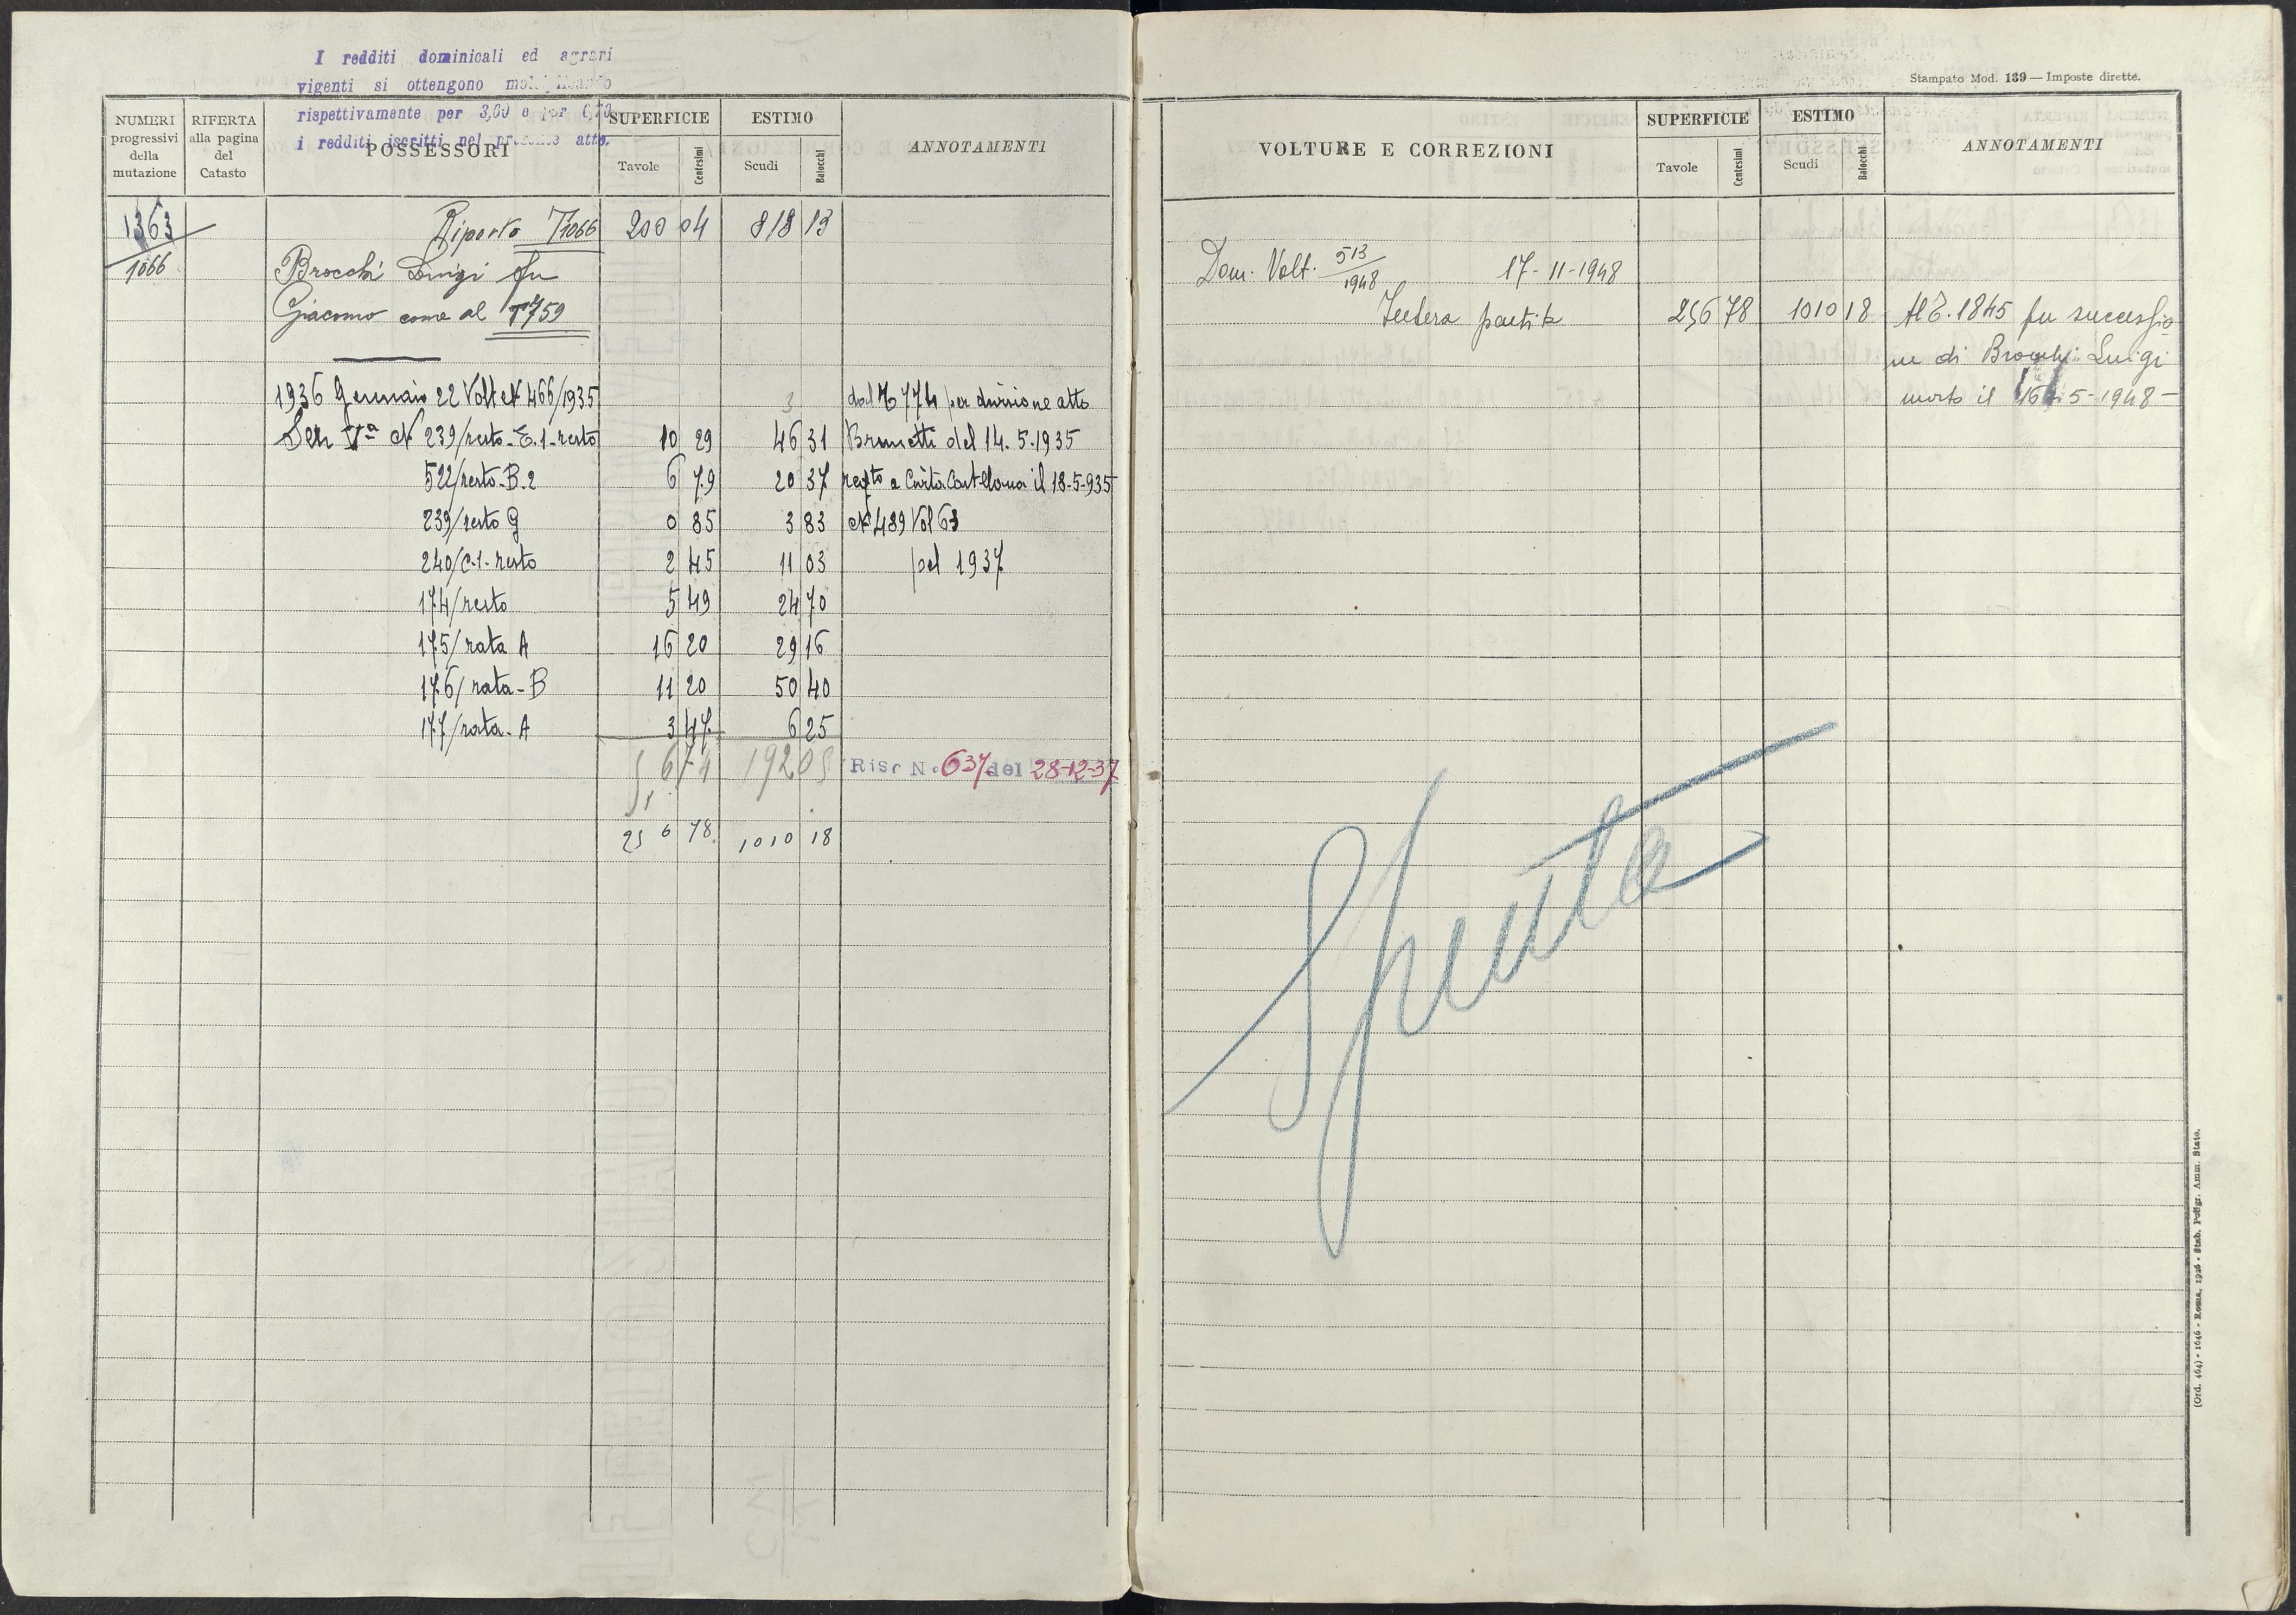 I redditi dominicali ed agrari
vigenti si ottengono moltiplicando
rispettivamente per 3,60 e per
i redditi iscritti nel presente atto.
NUMERI progressivi della mutazione
RIFERTA alla pagina del Catasto
POSSESSORI
SUPERFICIE
Tavole Centesimi
ESTIMO
Scudi Baiocchi
ANNOTAMENTI
1363 Riporto T 1066 200 04 818 13
1066 Brocchi Luigi fu
Giacomo come al T 759
1936 Gennaio 22 Volt N 466/1935 3 dal T 774 per divisione atto
Sez Vª N 239/resto-E.1-resto 10 29 46 31 Brunetti del 14.5.1935
522/resto-B.2 6 79 20 37 regto a Civita Castellana il 18-5-935
239/resto G 0 85 3 83 N 489 Vol 63
240/C.1-resto 2 45 11 03 pel 1937
174/resto 5 49 24 70
175/rata A 16 20 29 16
176/rata-B 11 20 50 40
177/rata-A 3 47 6 25
192 05 Risc N. 637 del 28-12-37
256 78 1010 18
Stampato Mod. 139 — Imposte dirette.
VOLTURE E CORREZIONI
SUPERFICIE
Tavole Centesimi
ESTIMO
Scudi Baiocchi
ANNOTAMENTI
Dom. Volt. 513/1948 17-11-1948
Intera partita 256 78 1010 18 Al T. 1845 per successio
ne di Brocchi Luigi
morto il 16-5-1948-
Spenta
(Ord. 464) - 1646 - Roma, 1926 - Stab. Poligr. Amm. Stato.